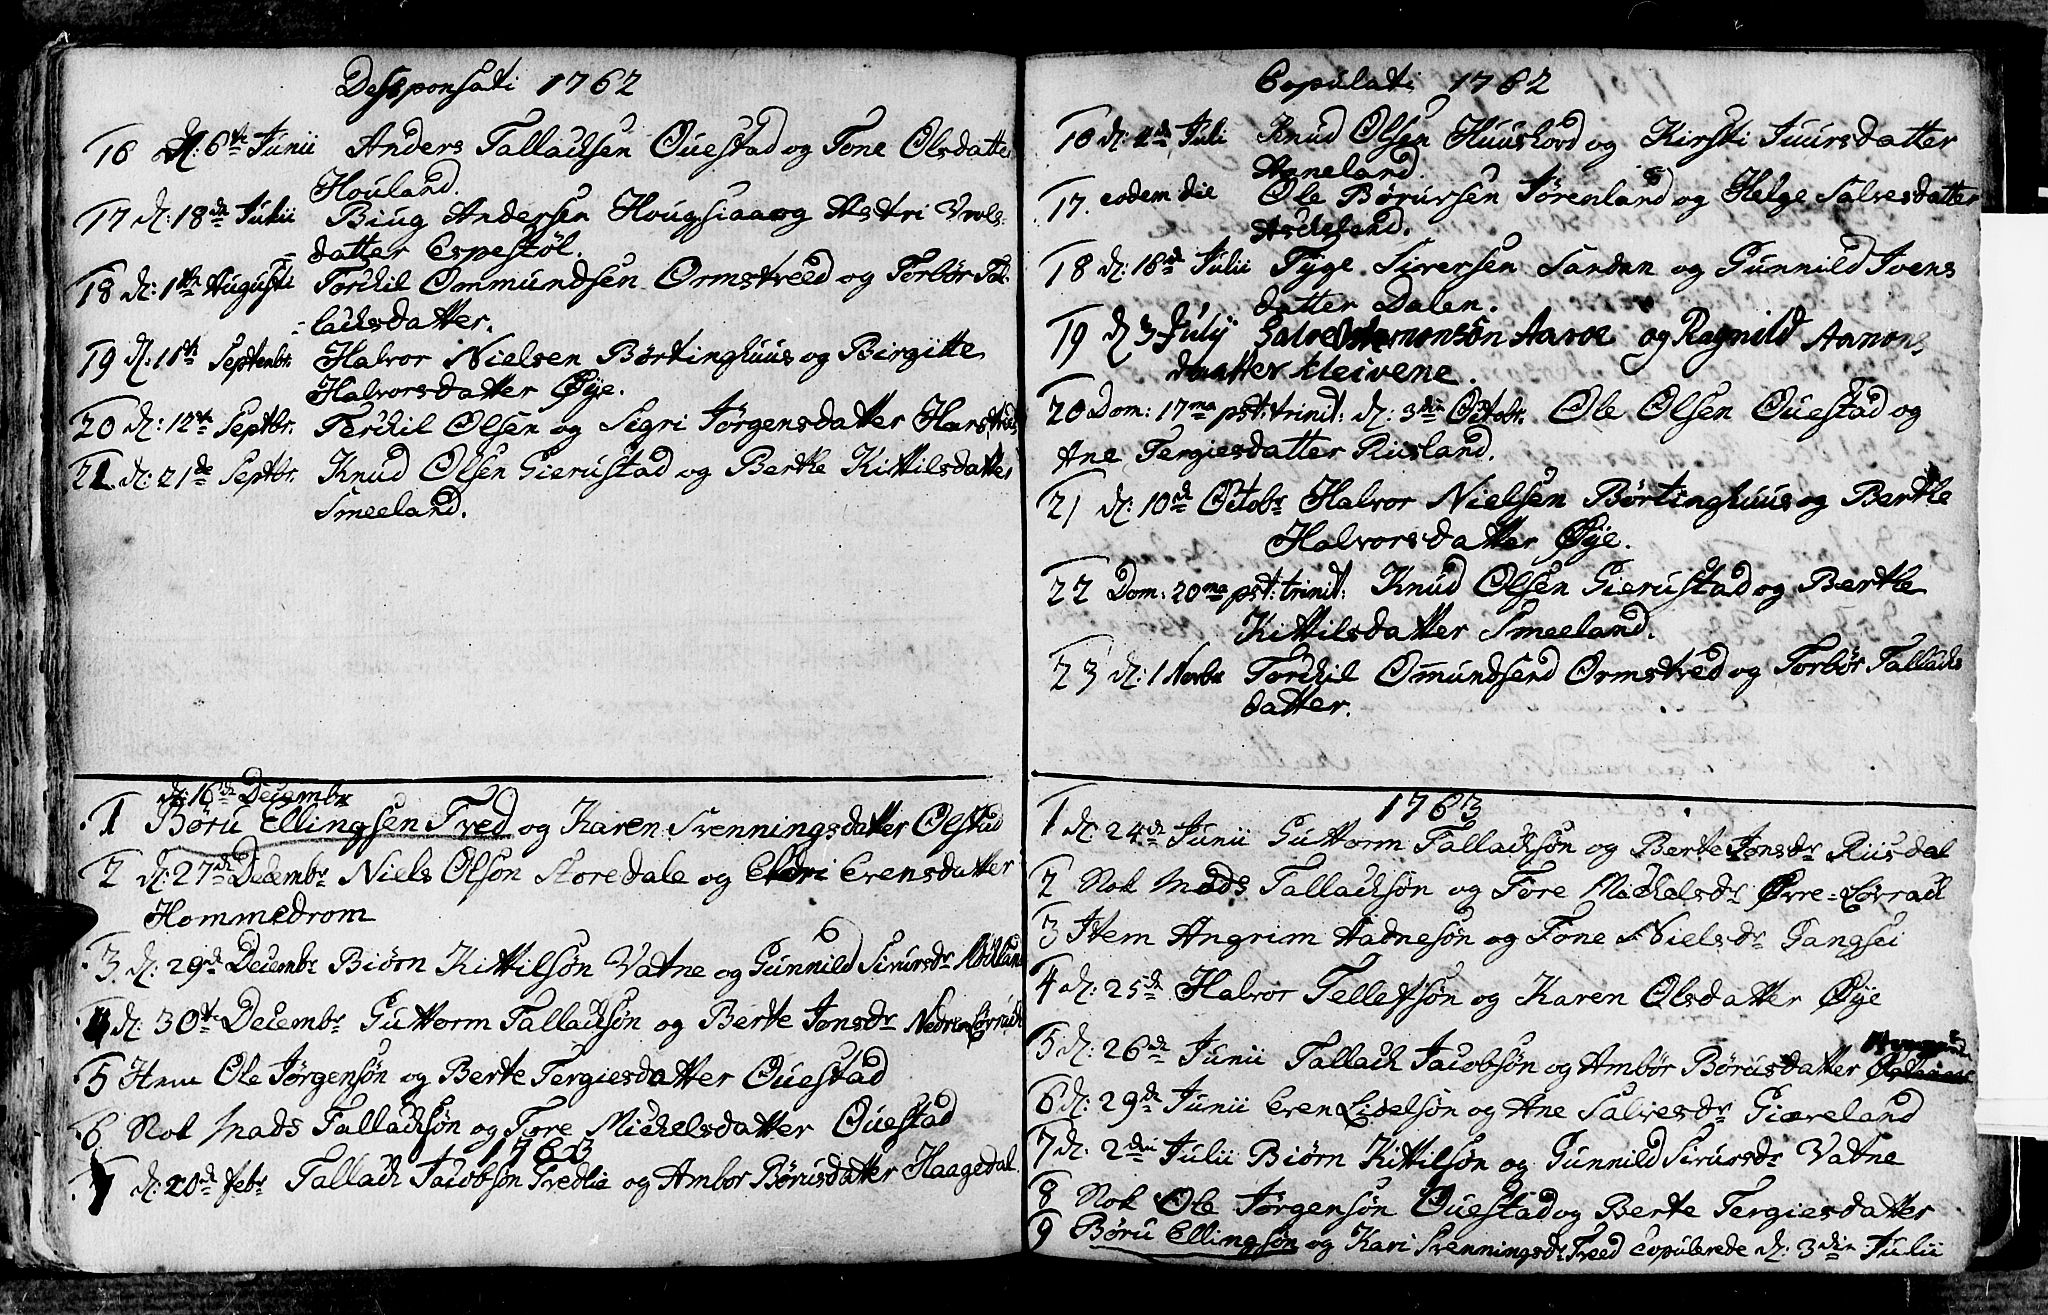 Desponsati 1762
16 d: 6te Junii Anders Tallachsen Ouestad og Tone Olsdatter
Houland.
17 d: 18de Julii Biug Andersen Hougsiaa og Astri Vrols-
=datter Espestøl.
18 d: 1te Augusti Torchil Ommundsen Ormstveed og Torbør Tal-
=lachsdatter.
19 d: 11te Septembr. Halvor Nielsen Børtinghuus og Birgitte
Halvorsdatter Øye.
20 d: 12te Septbr. Terchil Olsen og Sigri Jørgensdatter
21 d: 21de Septbr. Knud Olsen Gierustad og Berthe Kittilsdatter
Smeeland.
d: 16de Decembr
1 Børu Ellingsen Tved og Karen Svenningsdatter Ølstad
2 d: 27de Decembr Niels Olsøn Storedale og Eldri Evensdatter
Hommedrom
3 d: 29de Decembr Biørn Kittilsøn Vatne og Gunnild Sivursdr
4 d: 30te Decembr Guttorm Tallachsøn og Berte Jonsdr Nedre Løvrach
5 Item Ole Jørgensøn og Berte Tergiesdatter Ouestad
6 Nok Mads Tallachsøn og Tore Michelsdatter Ouestad
1763
7 d: 20de febr Tallach Jacobsøn Tvedtie og Ambor Børusdatter Haagedal.
Copulati 1762
16 d: 4de Julii Knud Olsen Huushovd og Kirsti Juursdatter
Anneland.
17. eodem die Ole Børursen Jørenland og Helge Salvesdatter
Ascheland.
18 d: 18de Julii Tyge Siversen Sanden og Gunnild Ivens
datter Dalen.
19 d 3 July Salve Aaroe og Ragnild Aanons
daatter Kleivene.
20 Dom: 17ma pst: trinit: d: 3die Octobr. Ole Olsen Ouestad og
Ane Tergiesdatter Riisland.
21 d: 10de Octobr Halvor Nielsen Børtinghuus og Berthe
Halvorsdatter Øye.
22 Dom: 20ma pst: trinit: Knud Olsen Gierustad og Berthe
Kittilsdatter Smeeland.
23 d: 1 Novbr Torchil Omundsend Ormstved og Torbør Tallachs
datter.
1763
1 d: 24de Junii Guttorm Tallachsøn og Berte Jonsdr Riisdal
2 Nok Mads Tallachsøn og Tore Michelsdr Øvre=Løvrach
3 Item Angrim Aadnesøn og Tone Nielsdr Gangsei
4 d: 25de Halvor Tellefsøn og Karen Olsdatter Øye
5 d: 26de Junii Tallach Jacobsøn og Ambør Børusdatter
6 d: 29de Junii Even Livelsøn og Ane Salvesdr Giæreland
7 d: 2den Julii Biørn Kittilsøn og Gunnild Sivursdr Vatne
8 Nok Ole Jørgensøn Ouestad og Berte Tergiesdatter
9 Børu Ellingsøn og Kari Svenningsdr Tveed copulerede d: 3die Julii